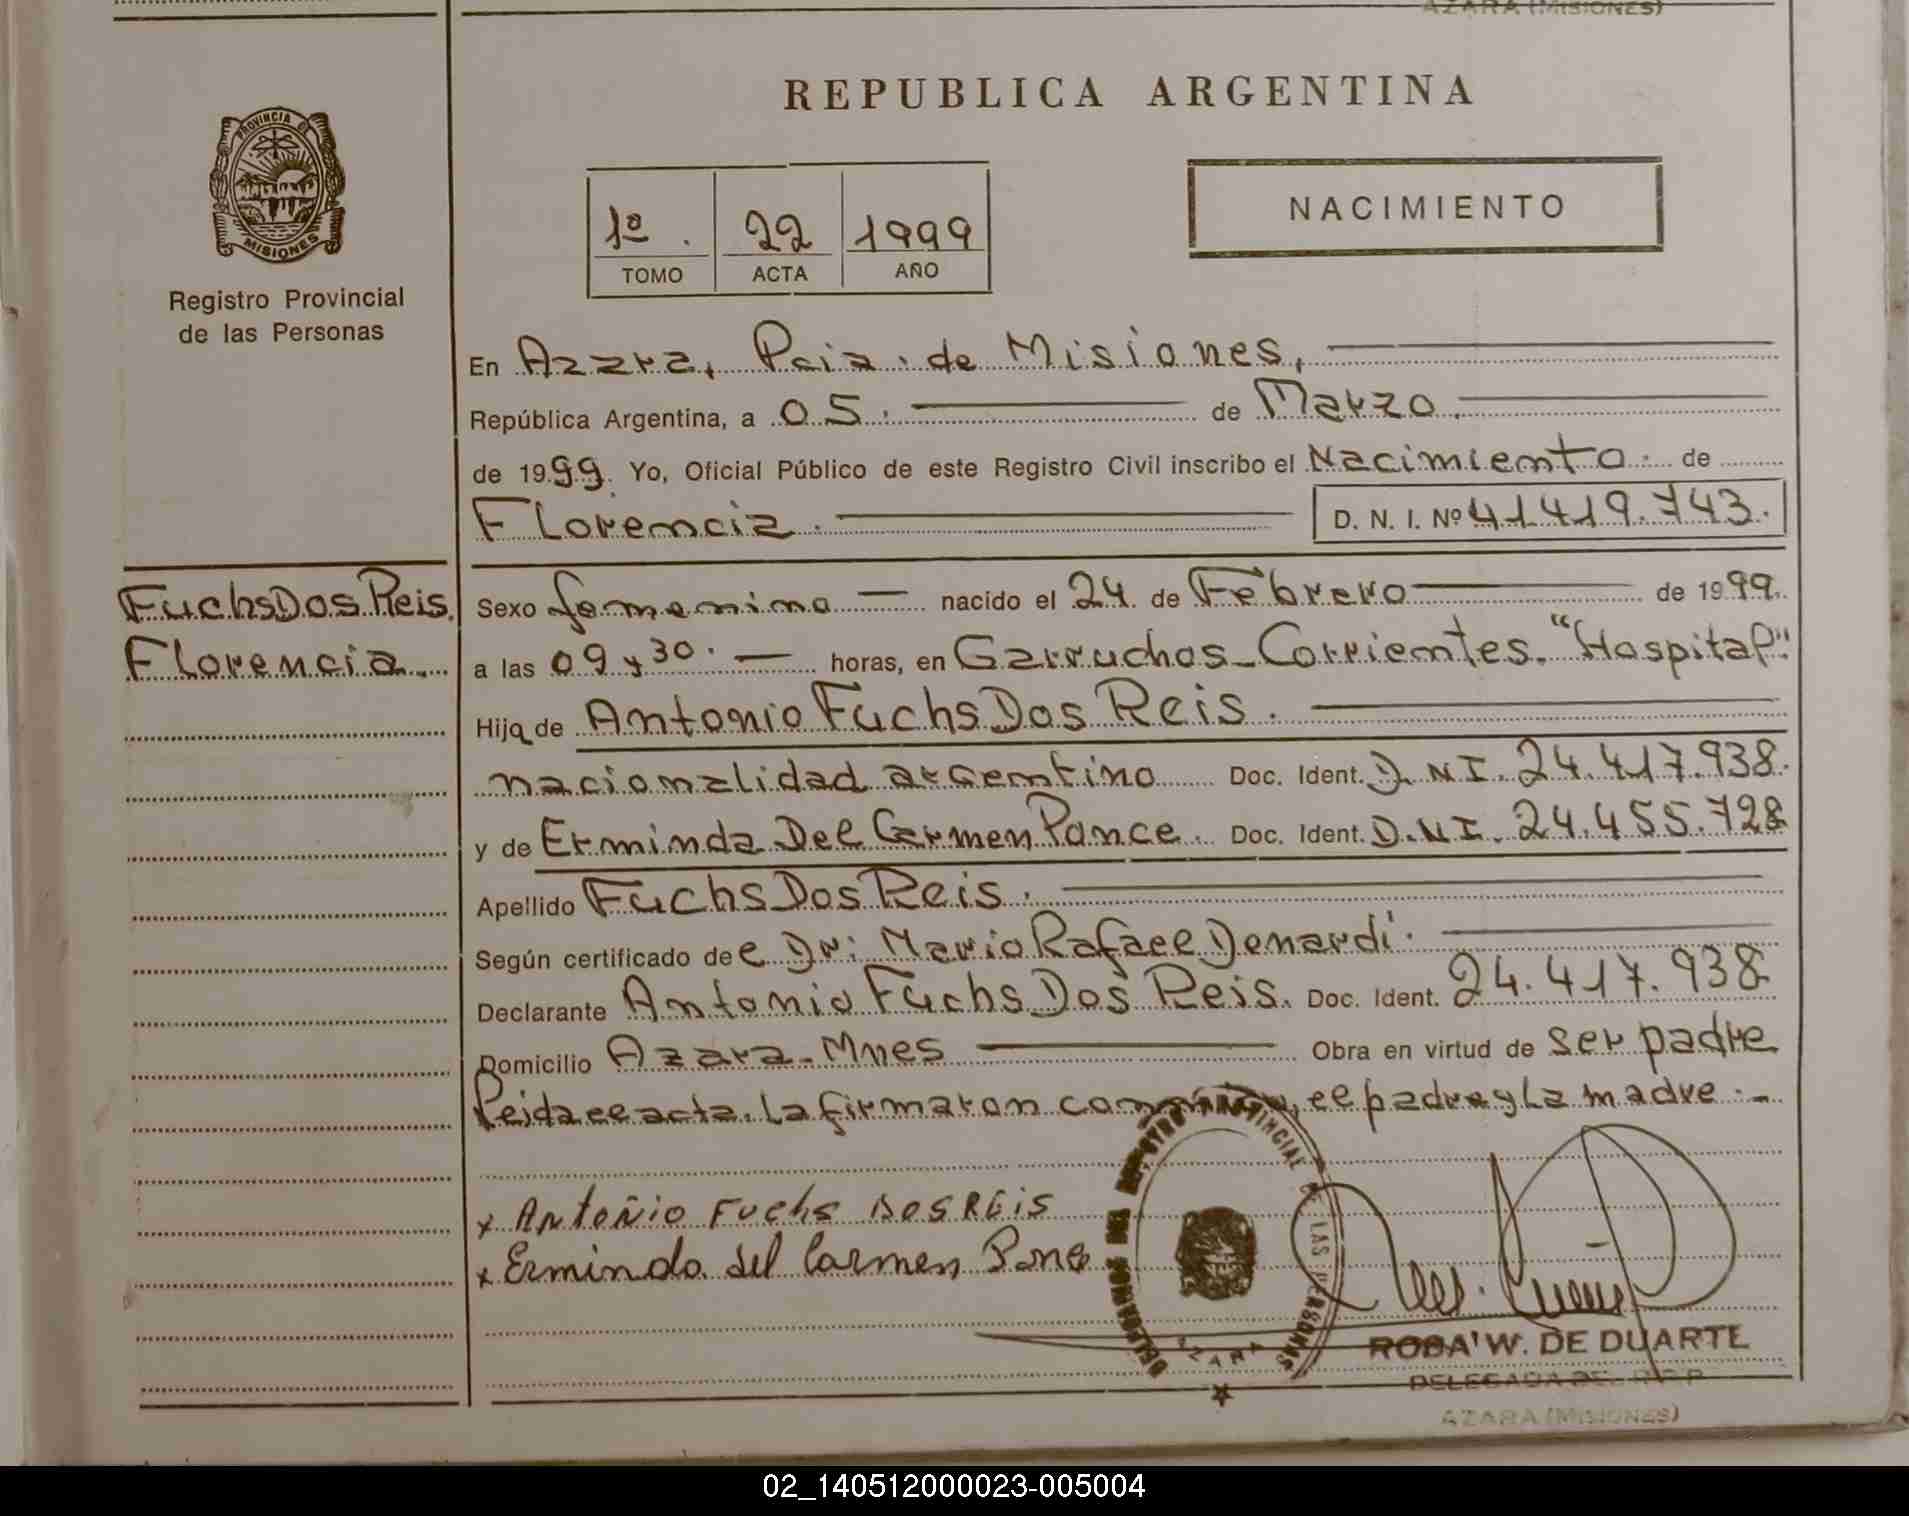 AZARA (MISIONES)
REPUBLICA ARGENTINA
PROVINCIA DE
MISIONES
Registro Provincial
de las Personas
1º. 22 1999
TOMO ACTA AÑO
NACIMIENTO
En Azara, Pcia. de Misiones,
República Argentina, a 05. de Marzo.
de 1999. Yo, Oficial Público de este Registro Civil inscribo el Nacimiento. de
Florencia. D. N. I. Nº 41419.743.
Fuchs Dos Reis.
Florencia.
Sexo femenino nacido el 24 de Febrero de 1999.
a las 09 y 30. horas, en Garruchos-Corrientes. "Hospital".
Hija de Antonio Fuchs Dos Reis.
nacionalidad argentino Doc. Ident. D.NI. 24.417.938.
y de Erminda Del Carmen Ponce. Doc. Ident. D.NI. 24.455.728
Apellido Fuchs Dos Reis.
Según certificado del Dr: Mario Rafael Denardi.
Declarante Antonio Fuchs Dos Reis. Doc. Ident. 24.417.938
Domicilio Azara-Mnes Obra en virtud de ser padre
Leida el acta. la firmaron conmigo, el padre y la madre.-
x Antoñio Fuchs Dos Reis
x Erminda del Carmen Ponce
DELEGACION DEL REGISTRO PROVINCIAL DE LAS PERSONAS
AZARA
ROSA W. DE DUARTE
DELEGADA DEL R.P.P.
AZARA (MISIONES)
02_140512000023-005004